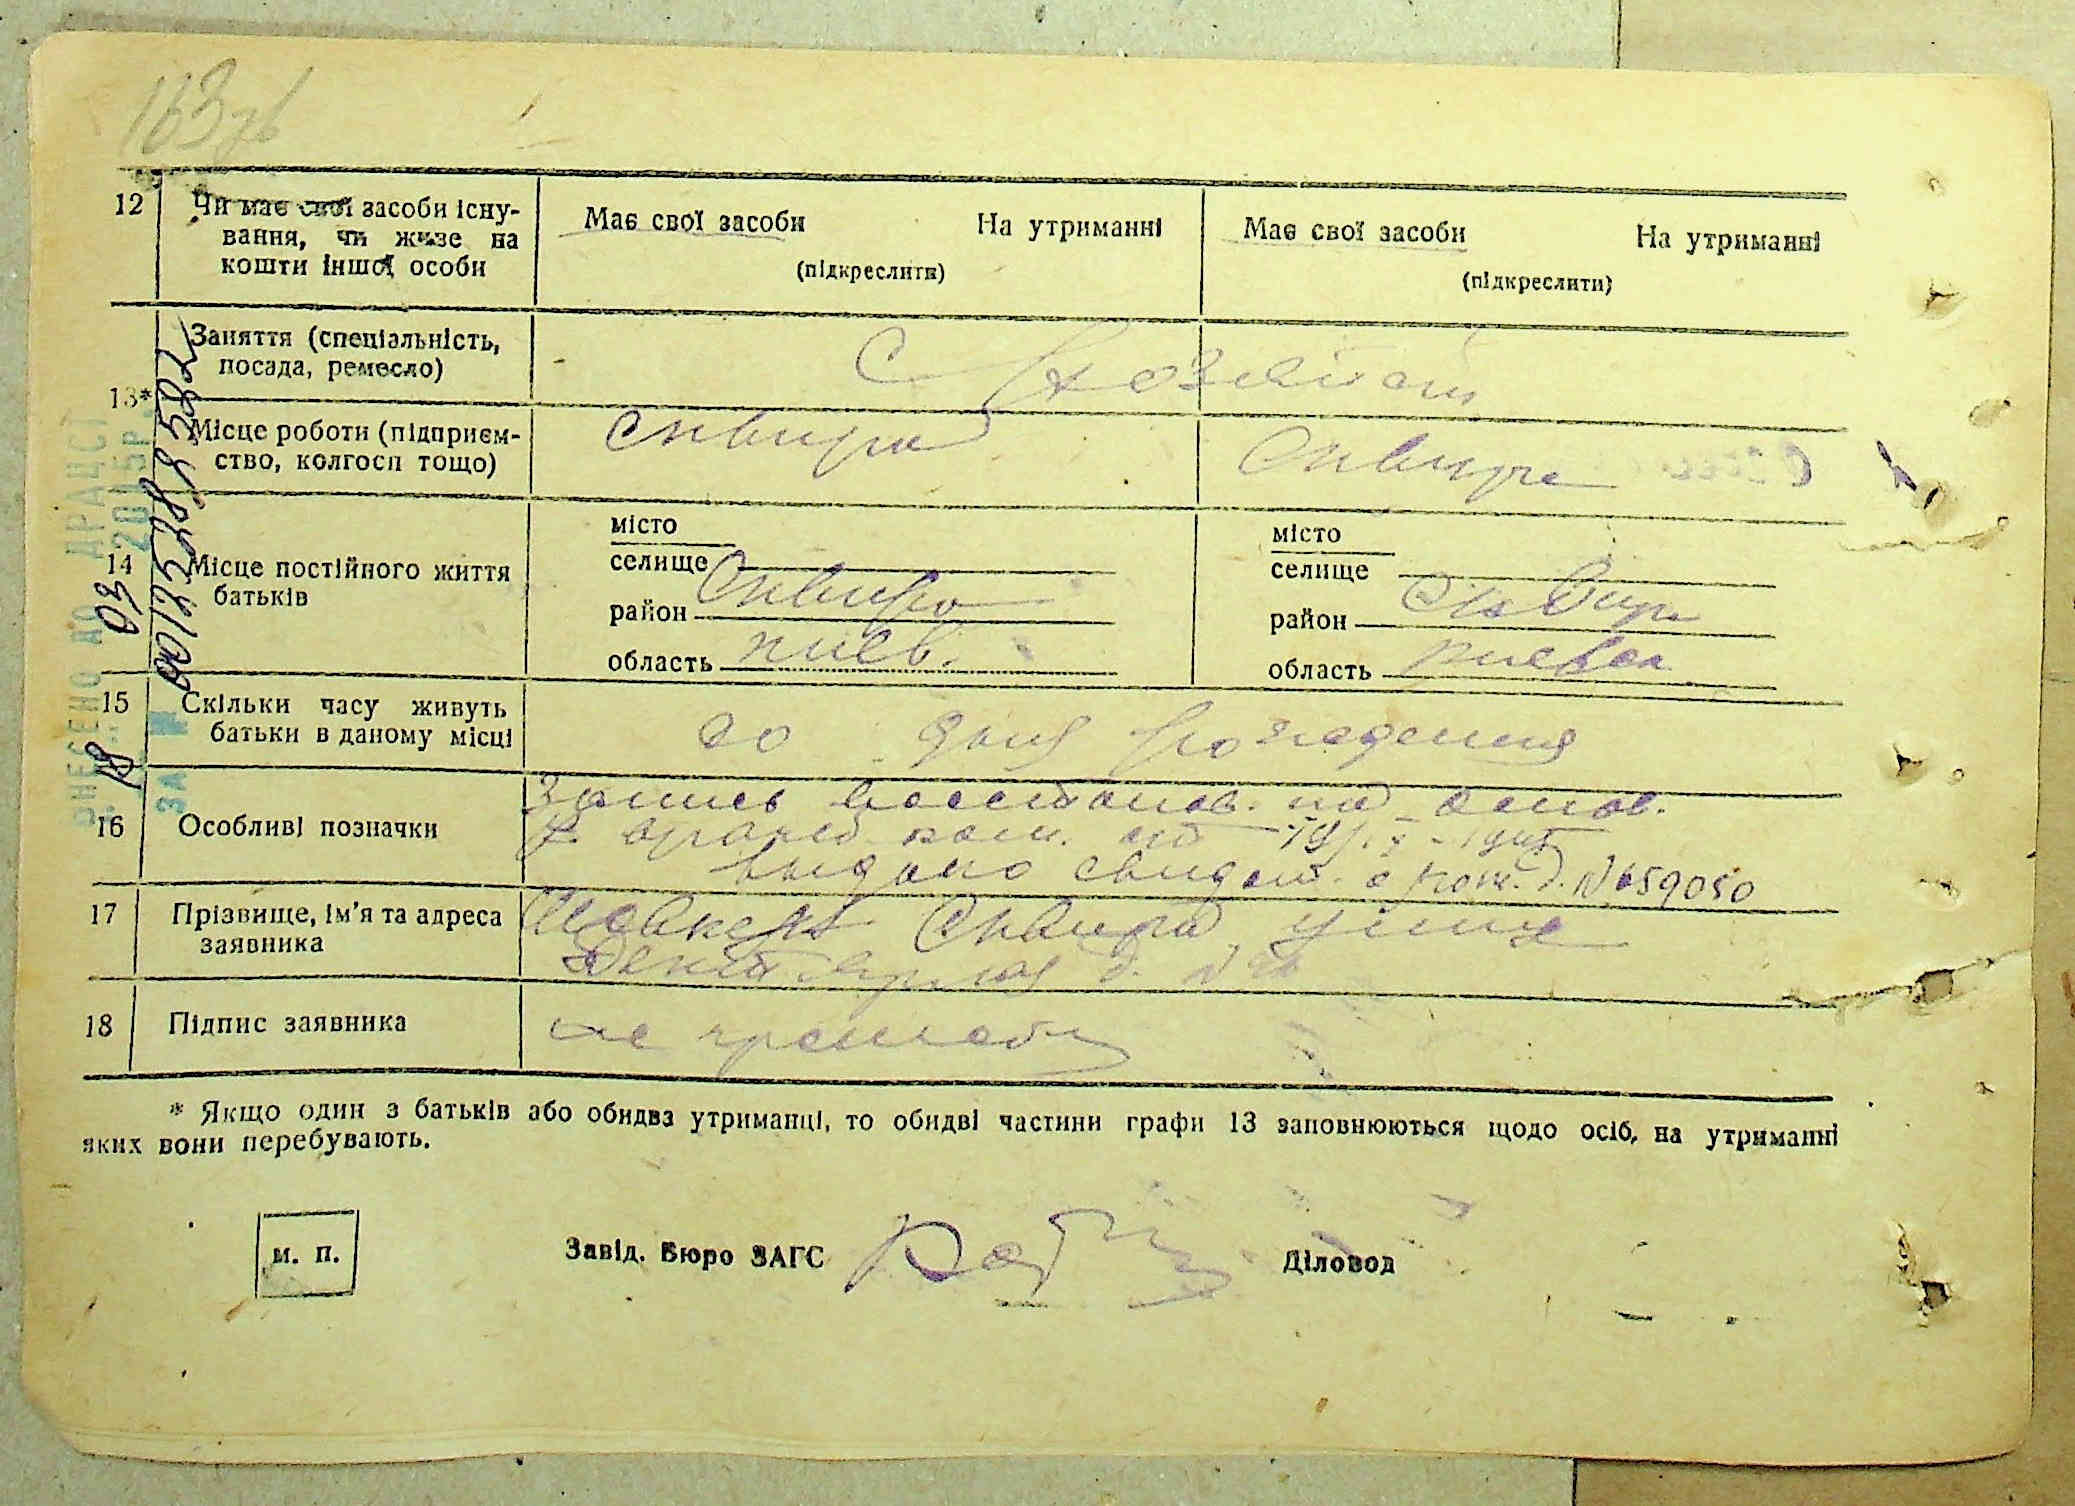 163 зв
12 Чи має свої засоби існу-
вання, чи живе на
кошти іншої особи
Має свої засоби На утриманні
(підкреслити)
Має свої засоби На утриманні
(підкреслити)
13*
Заняття (спеціальність,
посада, ремесло)
С Хозяйст
Місце роботи (підприєм-
ство, колгосп тощо)
Сквира
Сквира
14 Місце постійного життя
батьків
місто
селище
район Сквира
область киев.
місто
селище
район Сквир
область
15 Скільки часу живуть
батьки в даному місці
со дня рождения
16 Особливі позначки
Запись восстанов. на основ.
выдано свидет. о рожд. № 659050
17 Прізвище, ім'я та адреса
заявника
Сквира улица
д. №
18 Підпис заявника
не
* Якщо один з батьків або обидва утриманці, то обидві частини графи 13 заповнюються щодо осіб, на утриманні
яких вони перебувають.
м. п.
Завід. Бюро ЗАГС
Діловод
ВНЕСЕНО ДО ДРАЦСГ
18 03 2015р.
ЗА №